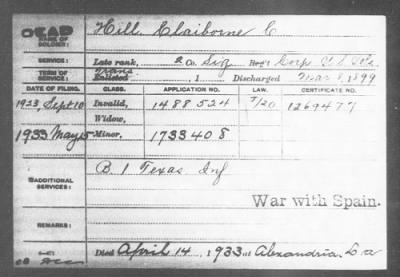 DEAD
NAME OF SOLDIER: Hill, Claiborne C
Late rank, 2 Co. Sig Reg't Corp. U.S. Vols.
TERM OF SERVICE: Trans Enlisted , 1 Discharged Mar 8, 1899
DATE OF FILING. CLASS. APPLICATION NO. LAW. CERTIFICATE NO.
1923, Sept 10 Invalid, 1488524 7/20 1269477
Widow,
1933 May 5 Minor, 1733408
ADDITIONAL SERVICES: B. 1 Texas Inf
War with Spain.
REMARKS:
Died April 14, 1933 at Alexandria, La